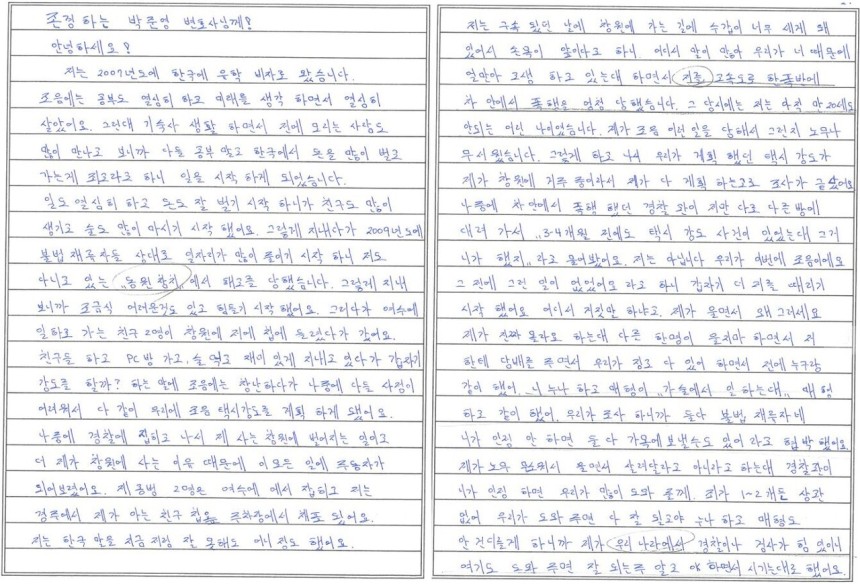 존경하는 박준영 변호사님께!
안녕하세요!
저는 2007년도에 한국에 유학 비자로 왔습니다.
처음에는 공부도 열심히 하고 미래를 생각 하면서 열심히
살았어요. 그런대 기숙사 생활 하면서 전에 모르는 사람도
많이 만나고 보니까 다들 공부 말고 한국에서 돈을 많이 벌고
가는게 최고라고 하니 일을 시작 하게 되었습니다.
일도 열심히 하고 돈도 잘 벌기 시작 하니가 친구도 많이
생기고 술도 많이 마시기 시작 했어요. 그렇게 지내다가 2009년도에
불법 체류자들 상대로 일자리가 많이 줄어기 시작 하니 저도
다니고 있는 "동원 참치"에서 해고를 당했습니다. 그렇게 지내
보니까 조금식 어려운것도 있고 힘들기 시작 했어요. 그러다가 여수에
일하로 가는 친구 2명이 창원에 저에 집에 들렸다가 갔어요.
친구들 하고 PC방 가고, 술 먹고 재미 있게 지내고 있다가 갑자기
강도를 할까? 하는 말에 처음에는 장난하다가 나중에 다들 사정이
어려워서 다 같이 우리에 처음 택시강도를 계획 하게 됐어요.
나중에 경찰에 잡히고 나서 제 사는 창원에 벌어지는 일이고
더 제가 창원에 사는 이유 때문에 이 모든 일에 주동자가
되어보렸어요. 제 공범 2명은 여수에 에서 잡히고 저는
경주에서 제가 아는 친구 집 주차장에서 체포 됬어요.
저는 한국 말을 지금 처럼 잘 못해도 어니 정도 했어요.
저는 구속 됬던 날에 창원에 가는 길에 수갑이 너무 세게 돼
있어서 손목이 앞이다고 하니. 어디서 말이 많아 우리가 너 때문에
얼만아 고생 하고 있는대 하면서 저를 고속도로 한쪽반에
차 안에서 폭행은 엄청 당했습니다. 그 당시에는 저는 아직 만 20세도
안되는 어린 나이였습니다. 제가 처음 이런일을 당해서 그런지 노무나
무서웠습니다. 그렇게 하고 나서 우리가 계획 했던 택시 강도가
제가 창원에 거주 중이라서 제가 다 계획 하는고로 조사가 끝났어요
나중에 차 안에서 폭행 했던 경찰 관이 저만 다로 다른 방에
대려 가서 "3-4개월 전에도 택시 강도 사건이 있었는대 그거
니가 했지"라고 물어봤어요. 저는 아닙니다 우리가 이번에 처음이에요
그 전에 그런 일이 없었어요 라고 하니 갑자기 더 저를 때리기
시작 했어요 어디서 거짓말 하냐고. 제가 울면서 왜 그러세요
제가 진짜 몰라요 하는대 다른 한명이 울지마 하면서 저
한테 담배를 주면서 우리가 증조 다 있어 하면서 전에 누구랑
같이 했어, 니 누나 하고 매형이 "가술에서 일 하는대" 매형
하고 같이 했어, 우리가 조사 하니까 둘다 불법 체류자네
니가 인정 안 하면 둘 다 감옥에 보낼수도 있어 라고 협박 했어요.
제가 노무 무서워서 울면서 살려달라고 아니라고 하는대 경찰관이
니가 인정 하면 우리가 많이 도와 줄께. 죄가 1~2개는 상관
없어 우리가 도와 주면 다 잘 되고야 누나 하고 매형도
안 건디를게 하니까 제가 우리 나라에서 경찰이나 검사가 힘 있이니
여기도 도와 주면 잘 되는주 알고 야 하면서 시키는대로 했어요.